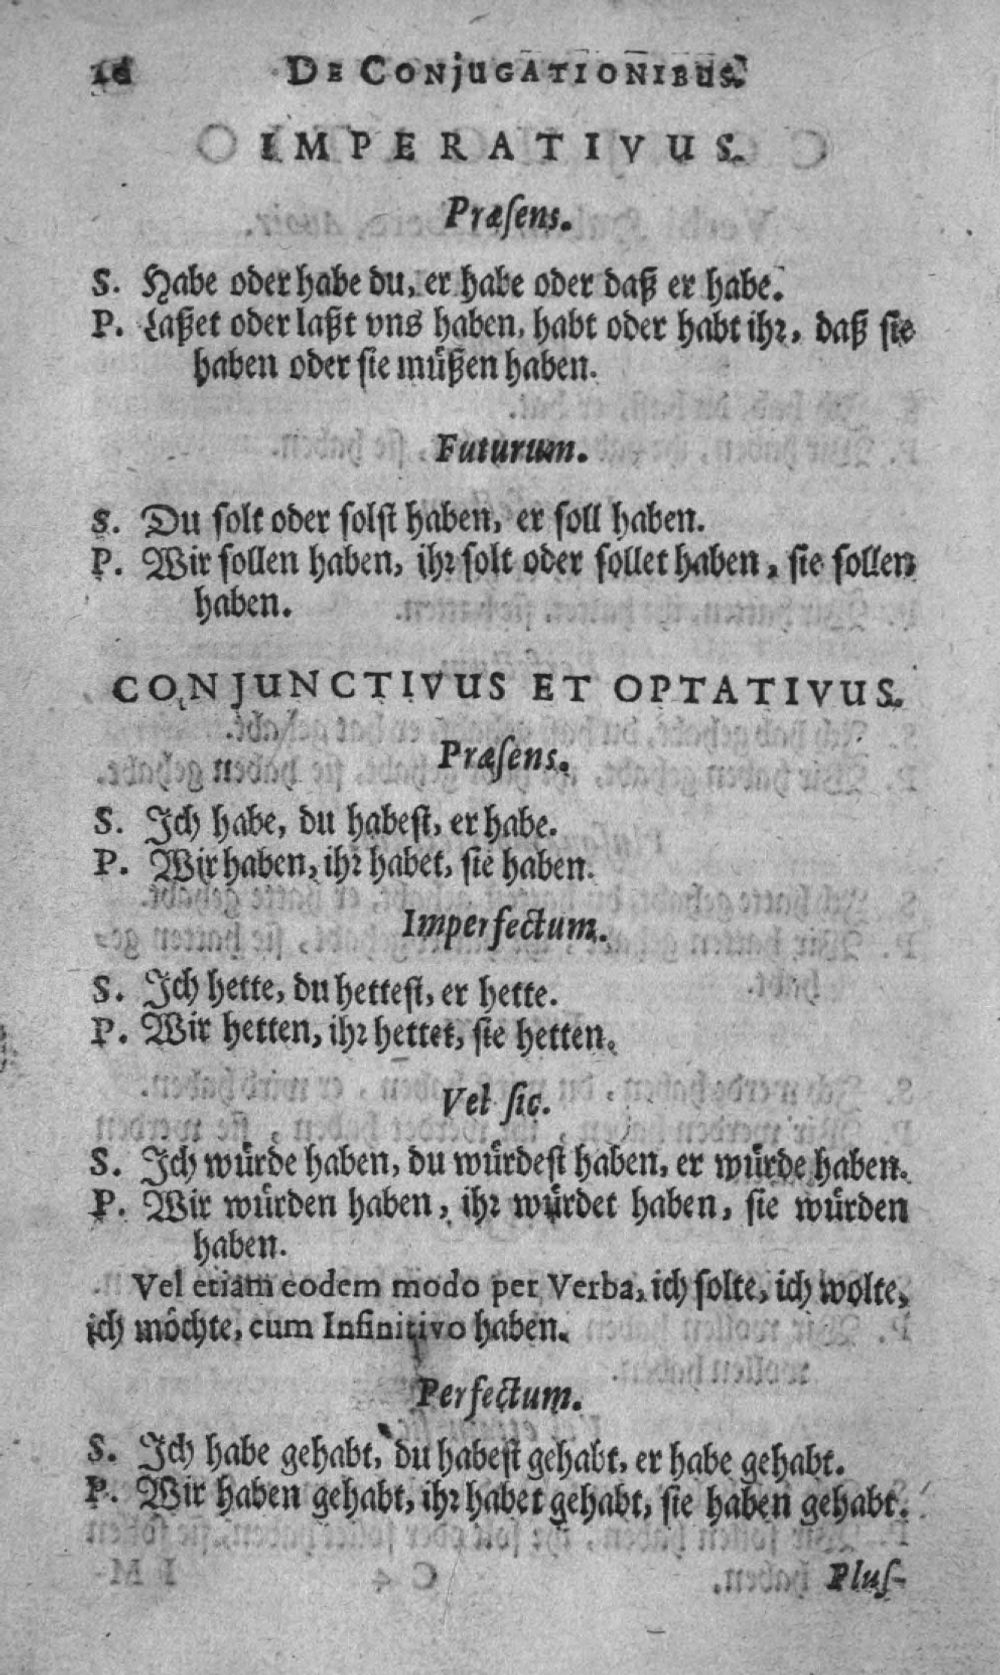 DE CONJUGATIONIBUS.
IMPERATIVUS.
Præſens.
S. Habe oder habe du, er habe oder daß er habe.
P. Laßet oder laßt vns haben, habt oder habt ihr, daß ſie
haben oder ſie müßen haben.
Futurum.
S. Du ſolt oder ſolſt haben, er ſoll haben.
P. Wir ſollen haben, ihr ſolt oder ſollet haben, ſie ſollen
haben.
CONJUNCTIVUS ET OPTATIVUS.
Præſens.
S. Ich habe, du habeſt, er habe.
P. Wir haben, ihr habet, ſie haben.
Imperfectum.
S. Ich hette, du hetteſt, er hette.
P. Wir hetten, ihr hettet, ſie hetten.
Vel ſic.
S. Ich würde haben, du würdeſt haben, er würde haben.
P. Wir würden haben, ihr würdet haben, ſie würden
haben.
Vel etiam eodem modo per Verba, ich ſolte, ich wolte,
ich möchte, cum Infinitivo haben.
Perfectum.
S. Ich habe gehabt, du habeſt gehabt, er habe gehabt.
P. Wir haben gehabt, ihr habet gehabt, ſie haben gehabt.
Pluſ-